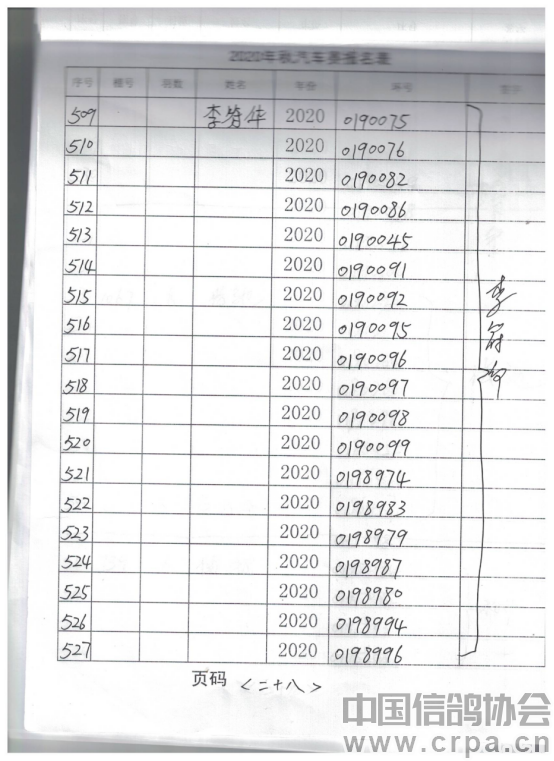 2020年秋汽车赛报名表
序号 棚号 羽数 姓名 年份 环号 签字
509 李 华 2020 0190075
510 2020 0190076
511 2020 0190082
512 2020 0190086
513 2020 0190045
514 2020 0190091
515 2020 0190092
516 2020 0190095
517 2020 0190096
518 2020 0190097
519 2020 0190098
520 2020 0190099
521 2020 0198974
522 2020 0198983
523 2020 0198979
524 2020 0198987
525 2020 0198980
526 2020 0198994
527 2020 0198996
李
页码 <二十八>
中国信鸽协会
www.crpa.cn